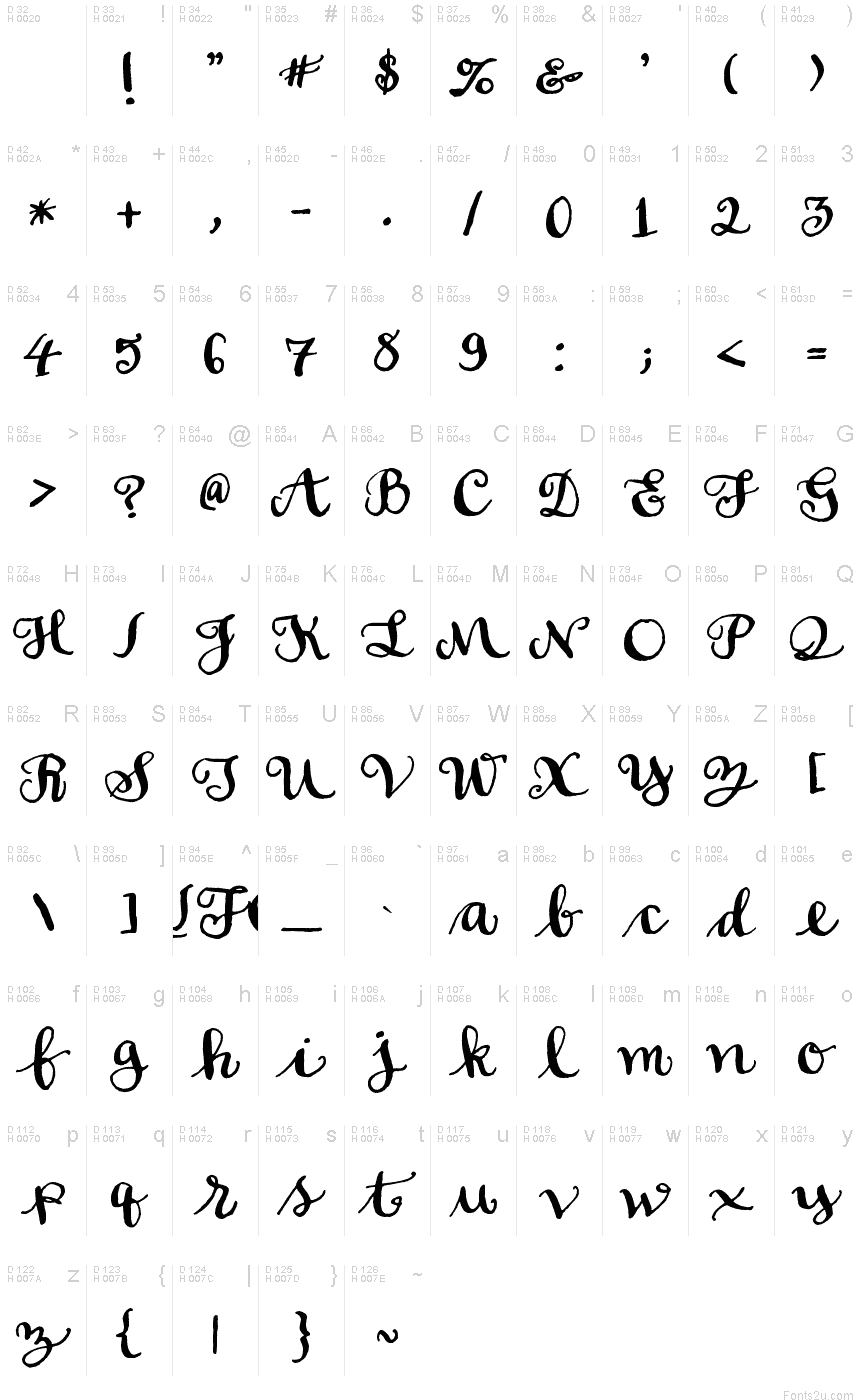 D 32 H 0020 D 33 H 0021 ! D 34 H 0022 " D 35 H 0023 # D 36 H 0024 $ D 37 H 0025 % D 38 H 0026 & D 39 H 0027 ' D 40 H 0028 ( D 41 H 0029 )
! " # $ % & ' ( )
D 42 H 002A * D 43 H 002B + D 44 H 002C , D 45 H 002D - D 46 H 002E . D 47 H 002F / D 48 H 0030 0 D 49 H 0031 1 D 50 H 0032 2 D 51 H 0033 3
* + , - . / 0 1 2 3
D 52 H 0034 4 D 53 H 0035 5 D 54 H 0036 6 D 55 H 0037 7 D 56 H 0038 8 D 57 H 0039 9 D 58 H 003A : D 59 H 003B ; D 60 H 003C < D 61 H 003D =
4 5 6 7 8 9 : ; < =
D 62 H 003E > D 63 H 003F ? D 64 H 0040 @ D 65 H 0041 A D 66 H 0042 B D 67 H 0043 C D 68 H 0044 D D 69 H 0045 E D 70 H 0046 F D 71 H 0047 G
> ? @ A B C D E F G
D 72 H 0048 H D 73 H 0049 I D 74 H 004A J D 75 H 004B K D 76 H 004C L D 77 H 004D M D 78 H 004E N D 79 H 004F O D 80 H 0050 P D 81 H 0051 Q
H I J K L M N O P Q
D 82 H 0052 R D 83 H 0053 S D 84 H 0054 T D 85 H 0055 U D 86 H 0056 V D 87 H 0057 W D 88 H 0058 X D 89 H 0059 Y D 90 H 005A Z D 91 H 005B [
R S T U V W X Y Z [
D 92 H 005C \ D 93 H 005D ] D 94 H 005E ^ D 95 H 005F _ D 96 H 0060 ` D 97 H 0061 a D 98 H 0062 b D 99 H 0063 c D 100 H 0064 d D 101 H 0065 e
\ ] _ ` a b c d e
D 102 H 0066 f D 103 H 0067 g D 104 H 0068 h D 105 H 0069 i D 106 H 006A j D 107 H 006B k D 108 H 006C l D 109 H 006D m D 110 H 006E n D 111 H 006F o
f g h i j k l m n o
D 112 H 0070 p D 113 H 0071 q D 114 H 0072 r D 115 H 0073 s D 116 H 0074 t D 117 H 0075 u D 118 H 0076 v D 119 H 0077 w D 120 H 0078 x D 121 H 0079 y
p q r s t u v w x y
D 122 H 007A z D 123 H 007B { D 124 H 007C | D 125 H 007D } D 126 H 007E ~
z { | } ~
Fonts2u.com